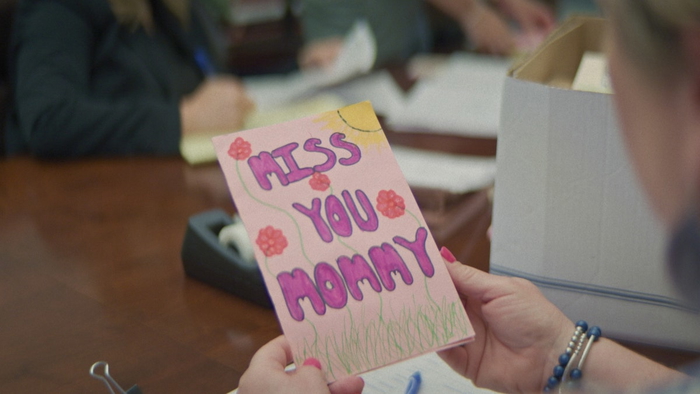 MISS
YOU
MOMMY